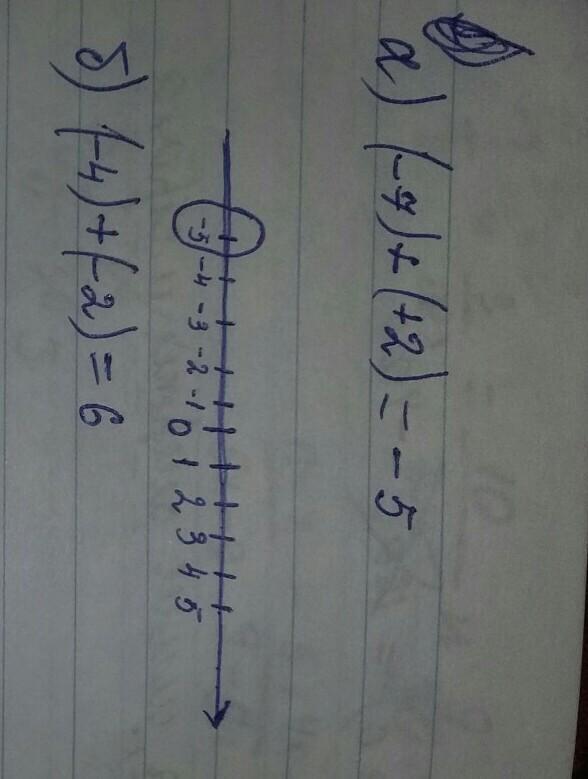 а) (-7)+(+2)=-5
-5 -4 -3 -2 -1 0 1 2 3 4 5
б) (-4)+(-2)=6